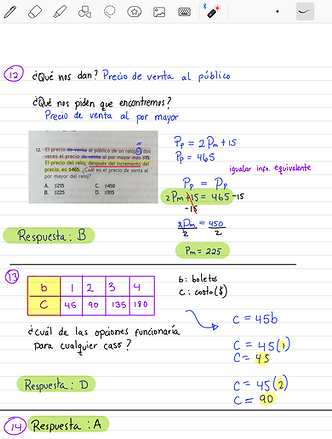 12 ¿Qué nos dan? Precio de venta al público
¿Qué nos piden que encontremos?
Precio de venta al por mayor
12. El precio de venta al público de un reloj es dos
veces el precio de venta al por mayor más $15.
El precio del reloj, después del incremento del
precio, es $465. ¿Cuál es el precio de venta al
por mayor del reloj?
A. $215 C. $450
B. $225 D. $915
Pp = 2Pm + 15
Pp = 465
igualar info. equivalente
Pp = Pp
2Pm + 15 = 465 -15
-15
2Pm = 450
2 2
Pm = 225
Respuesta: B
13
b 1 2 3 4
C 45 90 135 180
b: boletos
C: costo ($)
¿Cuál de las opciones funcionaría
para cualquier caso?
C = 45b
C = 45(1)
C = 45
Respuesta: D
C = 45(2)
C = 90
14 Respuesta: A